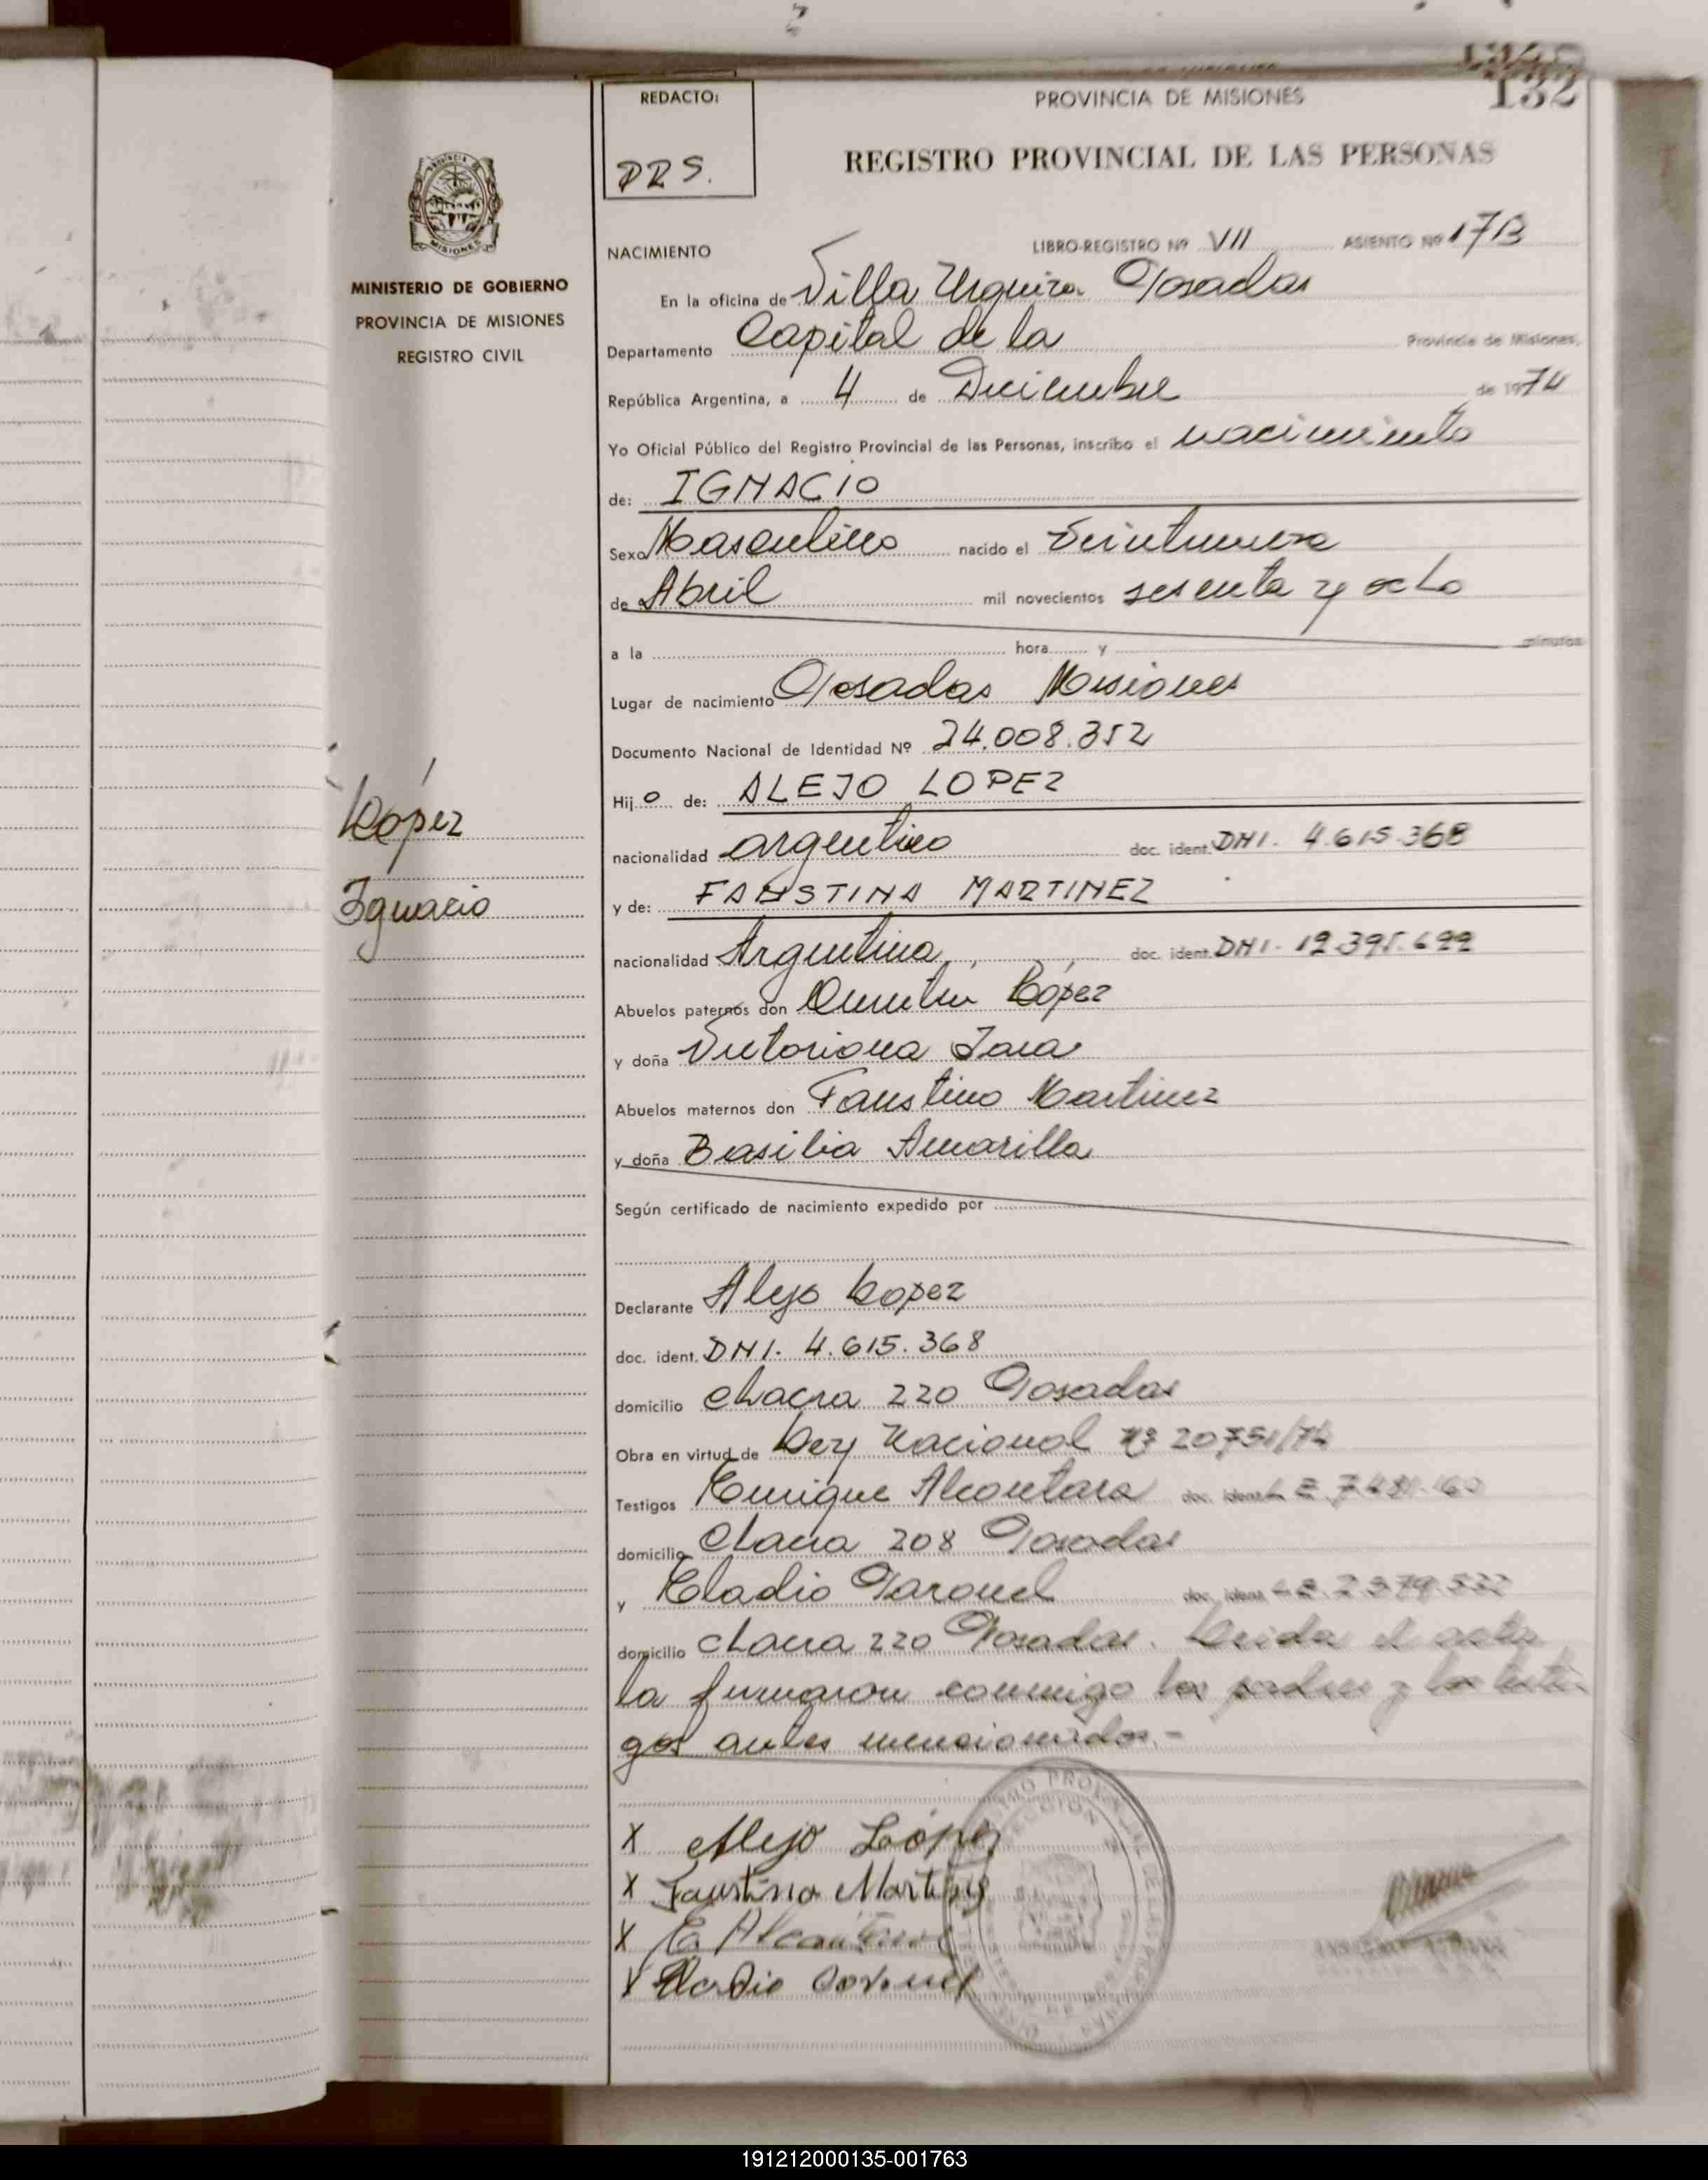 132
REDACTO:
DRS.
PROVINCIA DE MISIONES
REGISTRO PROVINCIAL DE LAS PERSONAS
MISIONES
MINISTERIO DE GOBIERNO
PROVINCIA DE MISIONES
REGISTRO CIVIL
López
Ignacio
NACIMIENTO LIBRO-REGISTRO Nº VII ASIENTO Nº
En la oficina de Villa Urquiza Posadas
Departamento Capital de la Provincia de Misiones,
República Argentina, a 4 de Diciembre de 1974
Yo Oficial Público del Registro Provincial de las Personas, inscribo el nacimiento
de: IGNACIO
Sexo Masculino nacido el Veintinueve
de Abril mil novecientos sesenta y ocho
a la hora y minutos
Lugar de nacimiento Posadas Misiones
Documento Nacional de Identidad Nº 24.008.352
Hijo de: ALEJO LOPEZ
nacionalidad argentino doc. ident. DNI. 4.615.368
y de: FAUSTINA MARTINEZ
nacionalidad Argentina doc. ident. DNI.
Abuelos paternos don Quintin López
y doña Victoriana Jara
Abuelos maternos don Faustino Martinez
y doña Basilia Amarilla
Según certificado de nacimiento expedido por
Declarante Alejo Lopez
doc. ident. DNI. 4.615.368
domicilio Chacra 220 Posadas
Obra en virtud de Ley Nacional Nº 20751/74
Testigos Enrique Alcantara doc. ident. L E
domicilio Chacra 208 Posadas
y Eladio doc. ident. L E. 2.379.532
domicilio Chacra 220 Posadas. Leida el acta
la firmaron conmigo los padres y los testi-
gos antes mencionados.-
X Alejo López
X Faustina Martinez
X E. Alcantara
X Eladio
191212000135-001763